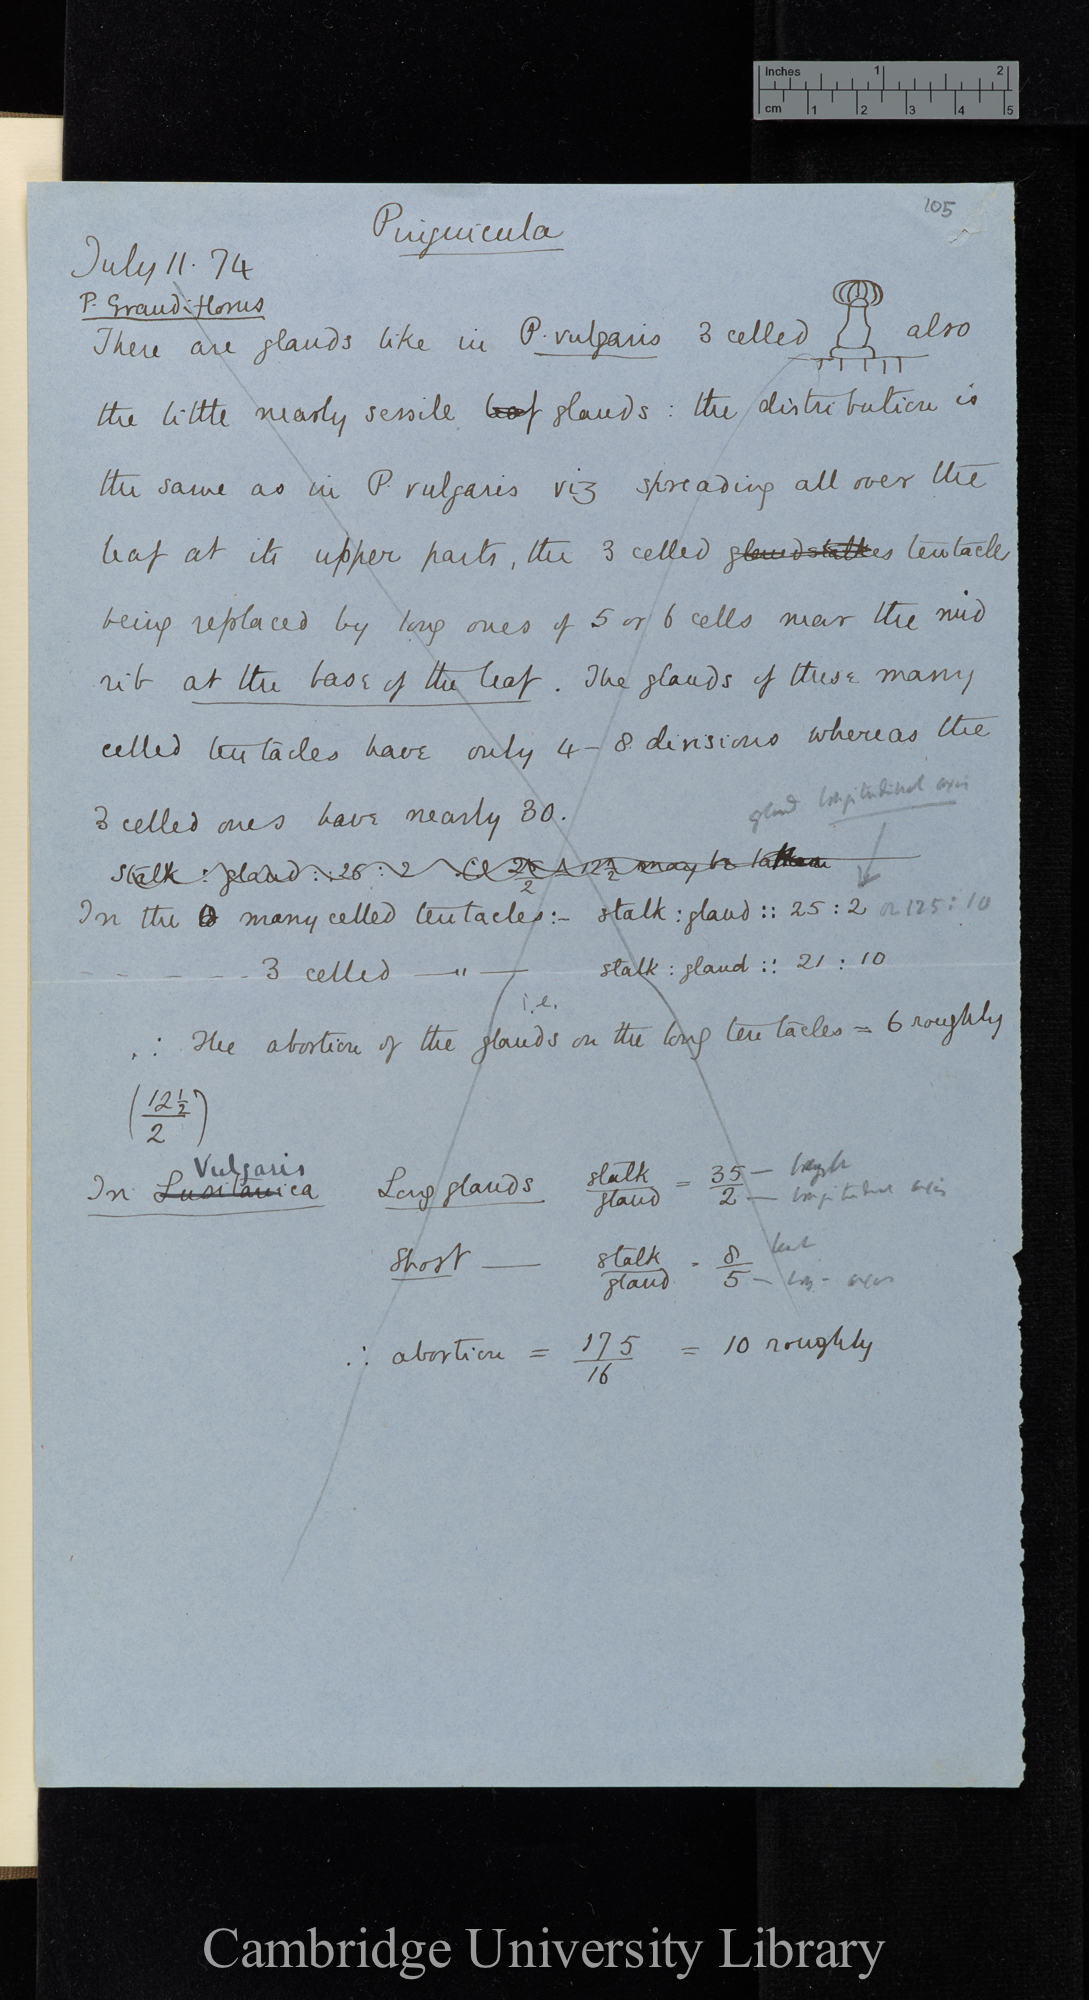 Inches 1 2
cm 1 2 3 4 5
105
Pinguicula
July 11. 74
P. Grandiflorus
There are glands like in P. vulgaris 3 celled also
the little nearly sessile leaf glands : the distribution is
the same as in P. vulgaris viz spreading all over the
leaf at its upper parts, the 3 celled glandstalkes tentacles
being replaced by long ones of 5 or 6 cells near the mid
rib at the base of the leaf. The glands of these many
celled tentacles have only 4–8 divisions whereas the
3 celled ones have nearly 30.
gland longitudinal axis
Stalk : gland :: 26 : 2 26/2 12½ may be taken
In the many celled tentacles :– stalk : gland :: 25 : 2 or 125 : 10
– – – – – 3 celled —"— stalk : gland :: 21 : 10
i.e.
∴ The abortion of the glands on the long tentacles = 6 roughly
(12½/2)
Vulgaris
In Lusitanica Long glands stalk/gland = 35/2 — length — longitudinal axis
Short — stalk/gland = 8/5 — axis
∴ abortion = 175/16 = 10 roughly
Cambridge University Library